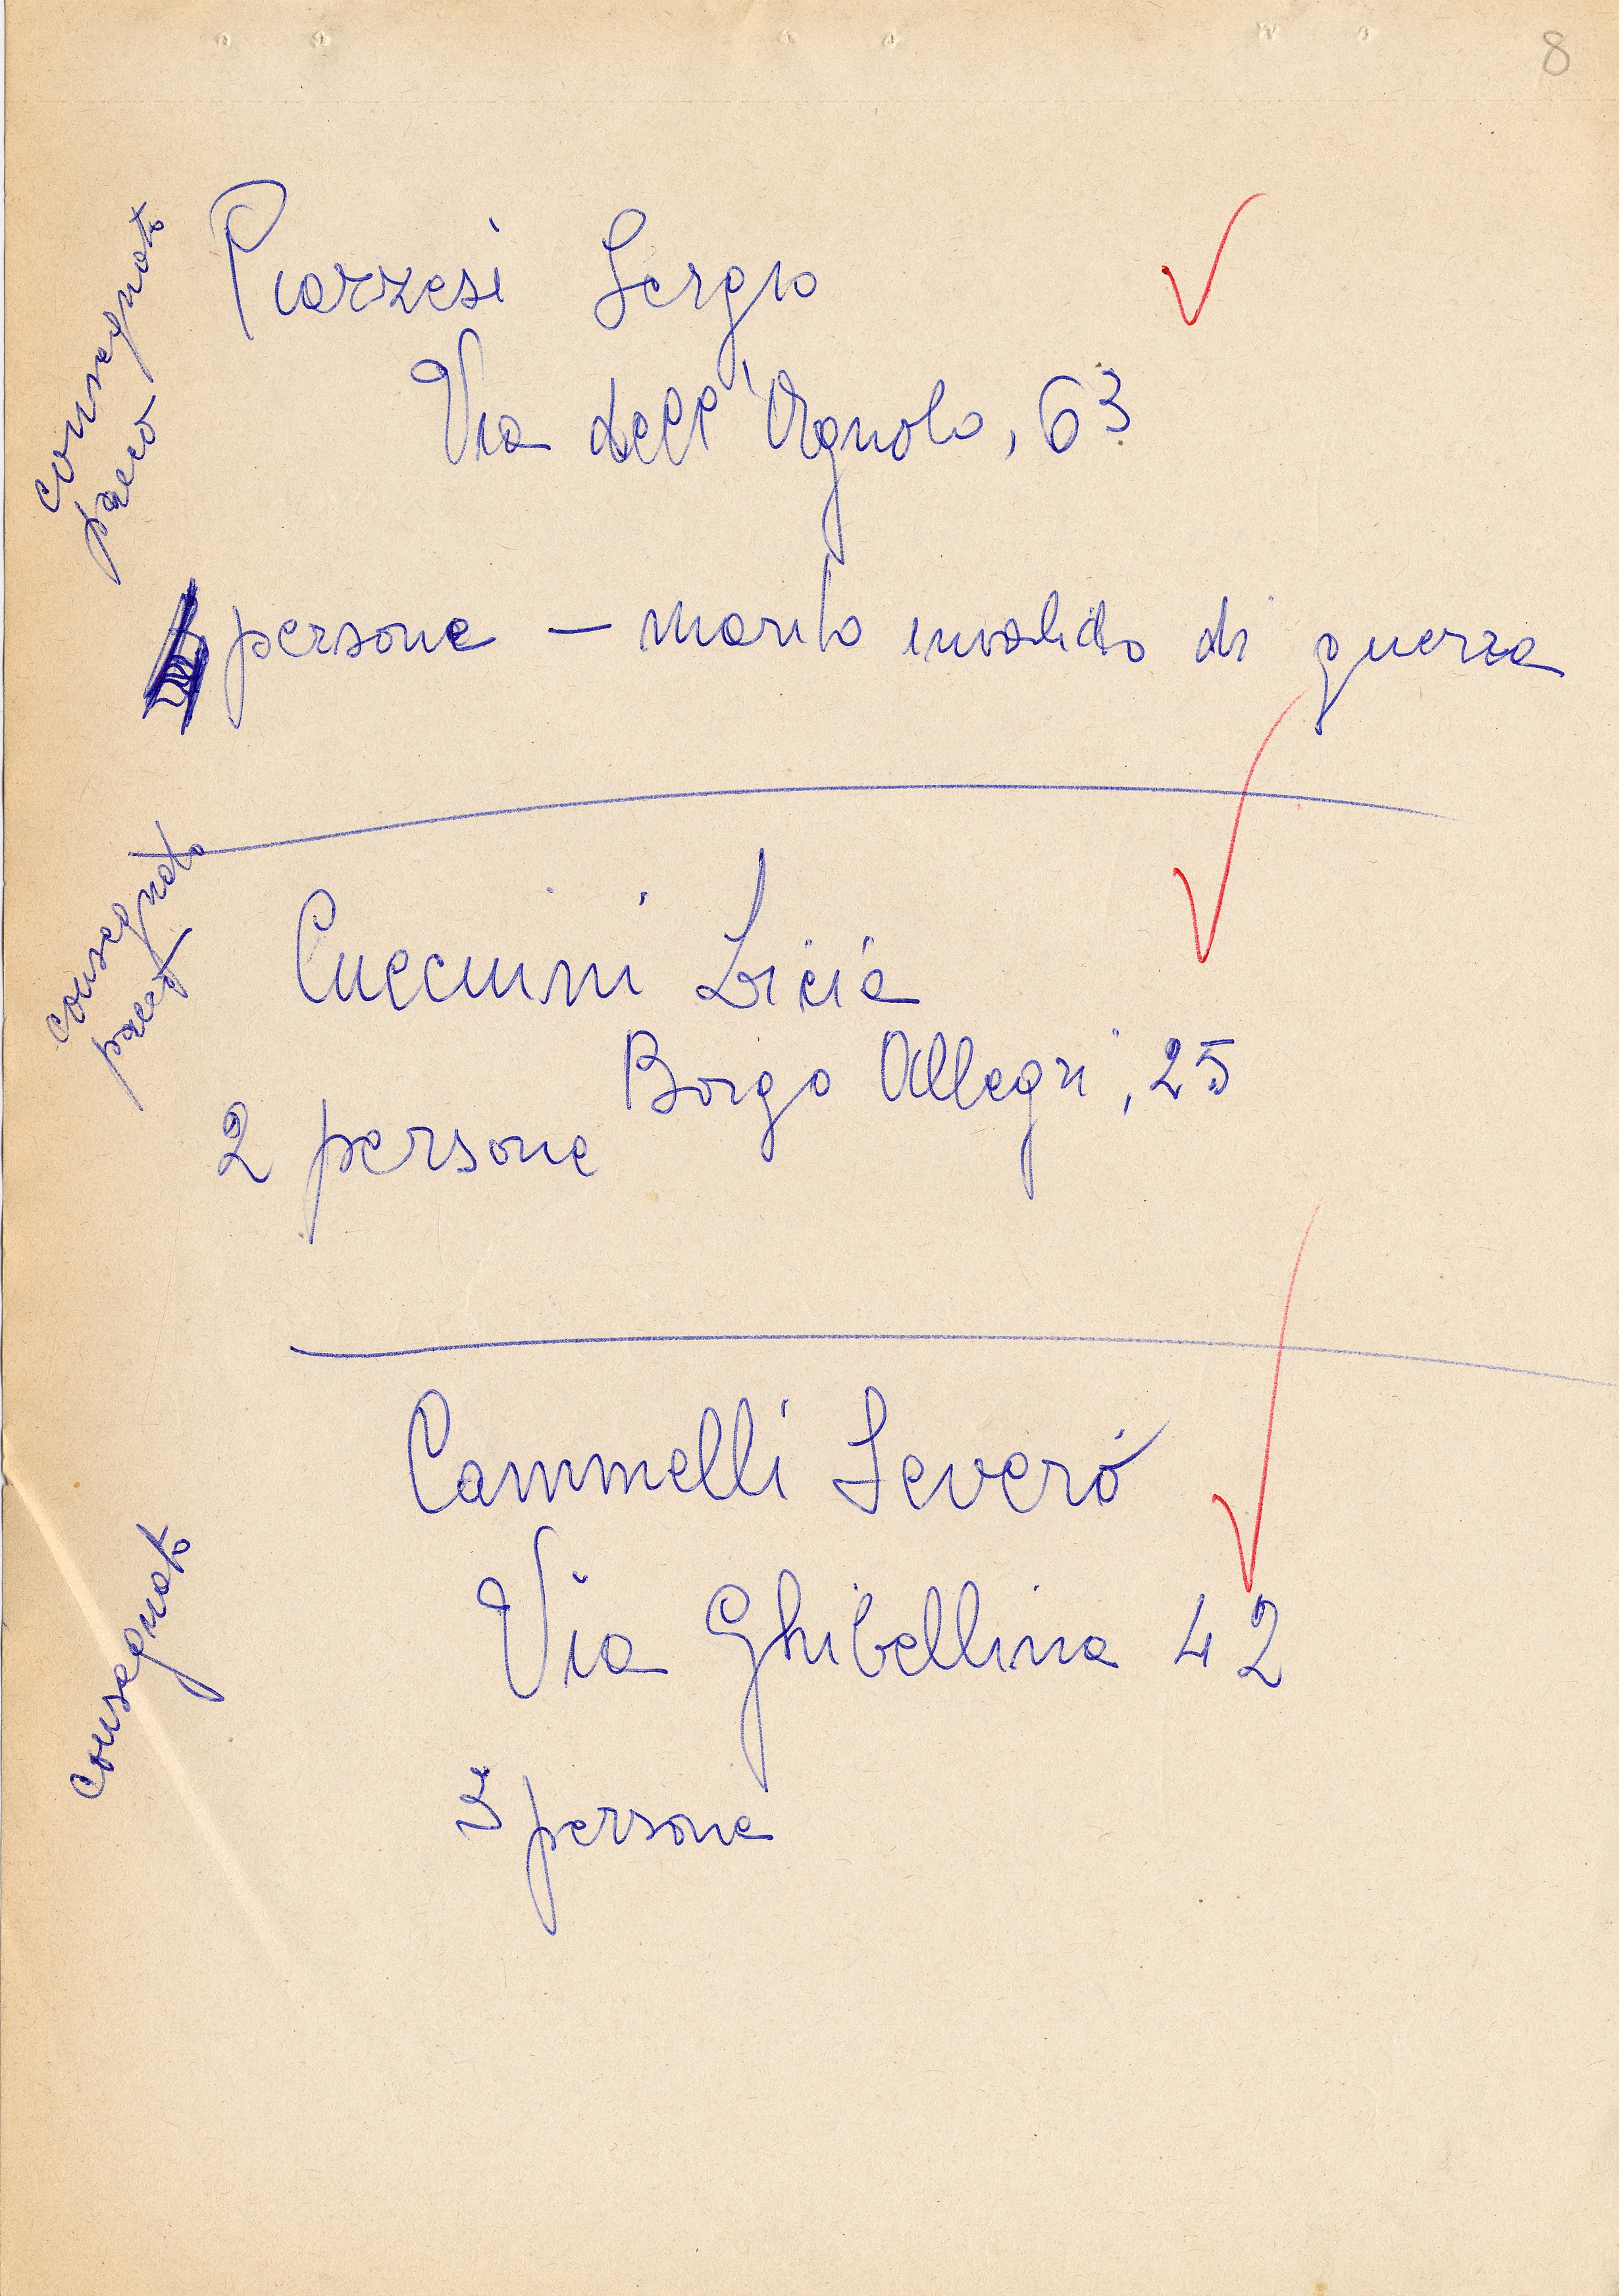 8
consegnato
pacco
Piazzesi Sergio
Via dell'Agnolo, 63
persone – marito invalido di guerra
consegnato
pacco
Cuccuini Licia
Borgo Allegri, 25
2 persone
Cammelli Severo
Via Ghibellina 42
consegnato
persone